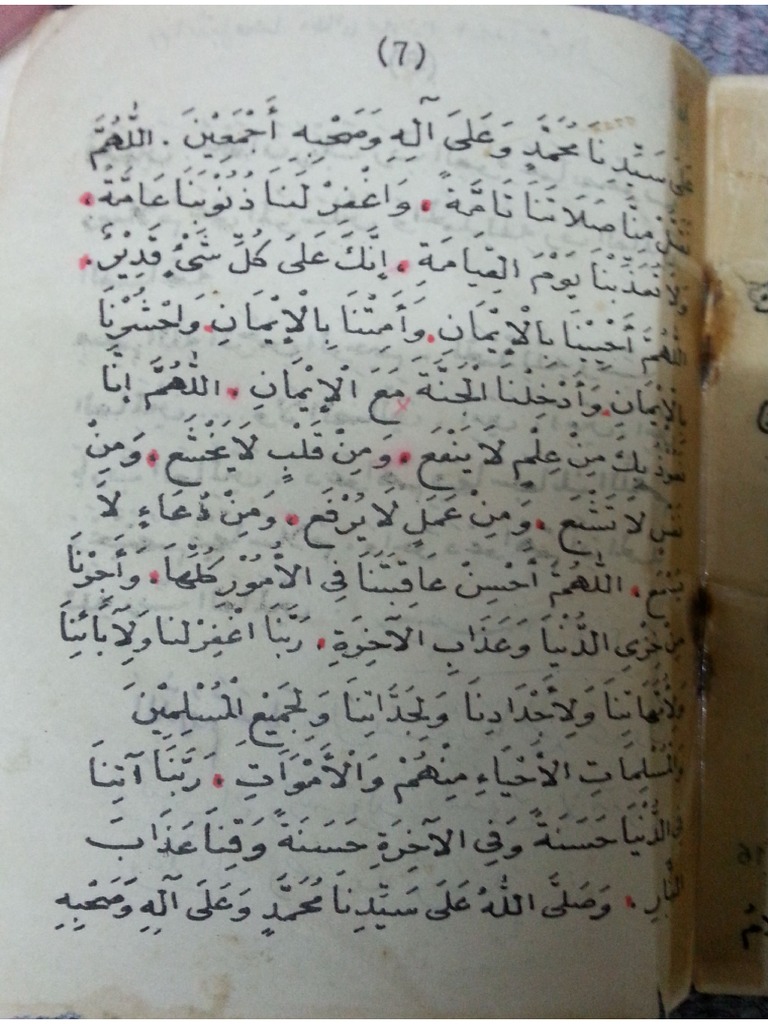 (7)
عَلَى سَيِّدِنَا مُحَمَّدٍ وَعَلَى آلِهِ وَصَحْبِهِ أَجْمَعِيْنَ . اَللّٰهُمَّ
تَقَبَّلْ مِنَّا صَلَاتَنَا تَامَّةً . وَاغْفِرْ لَنَا ذُنُوْبَنَا عَامَّةً .
وَلَا تُعَذِّبْنَا يَوْمَ الْقِيَامَةِ . إِنَّكَ عَلَى كُلِّ شَىْءٍ قَدِيْرٌ .
اَللّٰهُمَّ أَحْيِيْنَا بِالْإِيْمَانِ . وَأَمِتْنَا بِالْإِيْمَانِ . وَاحْشُرْنَا
بِالْإِيْمَانِ . وَأَدْخِلْنَا الْجَنَّةَ مَعَ الْإِيْمَانِ . اَللّٰهُمَّ إِنَّا
نَعُوْذُ بِكَ مِنْ عِلْمٍ لَا يَنْفَع . وَمِنْ قَلْبٍ لَا يَخْشَع . وَمِنْ
نَفْسٍ لَا تَشْبَع . وَمِنْ عَمَلٍ لَا يُرْفَع . وَمِنْ دُعَاءٍ لَا
. اَللّٰهُمَّ أَحْسِنْ عَاقِبَتَنَا فِى الْأُمُوْرِ كُلِّهَا . وَأَجِرْنَا
مِنْ خِزْىِ الدُّنْيَا وَعَذَابِ الْآخِرَةِ . رَبَّنَا اغْفِرْ لَنَا وَلِآبَائِنَا
وَلِأُمَّهَاتِنَا وَلِأَجْدَادِنَا وَلِجَدَّاتِنَا وَلِجَمِيْعِ الْمُسْلِمِيْنَ
وَالْمُسْلِمَاتِ الْأَحْيَاءِ مِنْهُمْ وَالْأَمْوَاتِ . رَبَّنَا آتِنَا
فِى الدُّنْيَا حَسَنَةً وَفِى الْآخِرَةِ حَسَنَةً وَقِنَا عَذَابَ
النَّارِ . وَصَلَّى اللّٰهُ عَلَى سَيِّدِنَا مُحَمَّدٍ وَعَلَى آلِهِ وَصَحْبِهِ